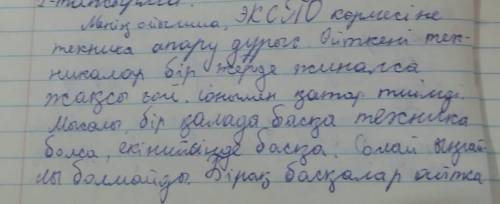 2-тапсырма.
Менің ойымша, ЭКСПО көрмесіне
техника апару дұрыс. Өйткені тех-
никалар бір жерде жиналса
жақсы ғой, сонымен қатар тиімді.
Мысалы, бір қалада басқа техника
болса, екіншісінде басқа. Солай ыңғай
лы болмайды. Бірақ басқалар айтқа